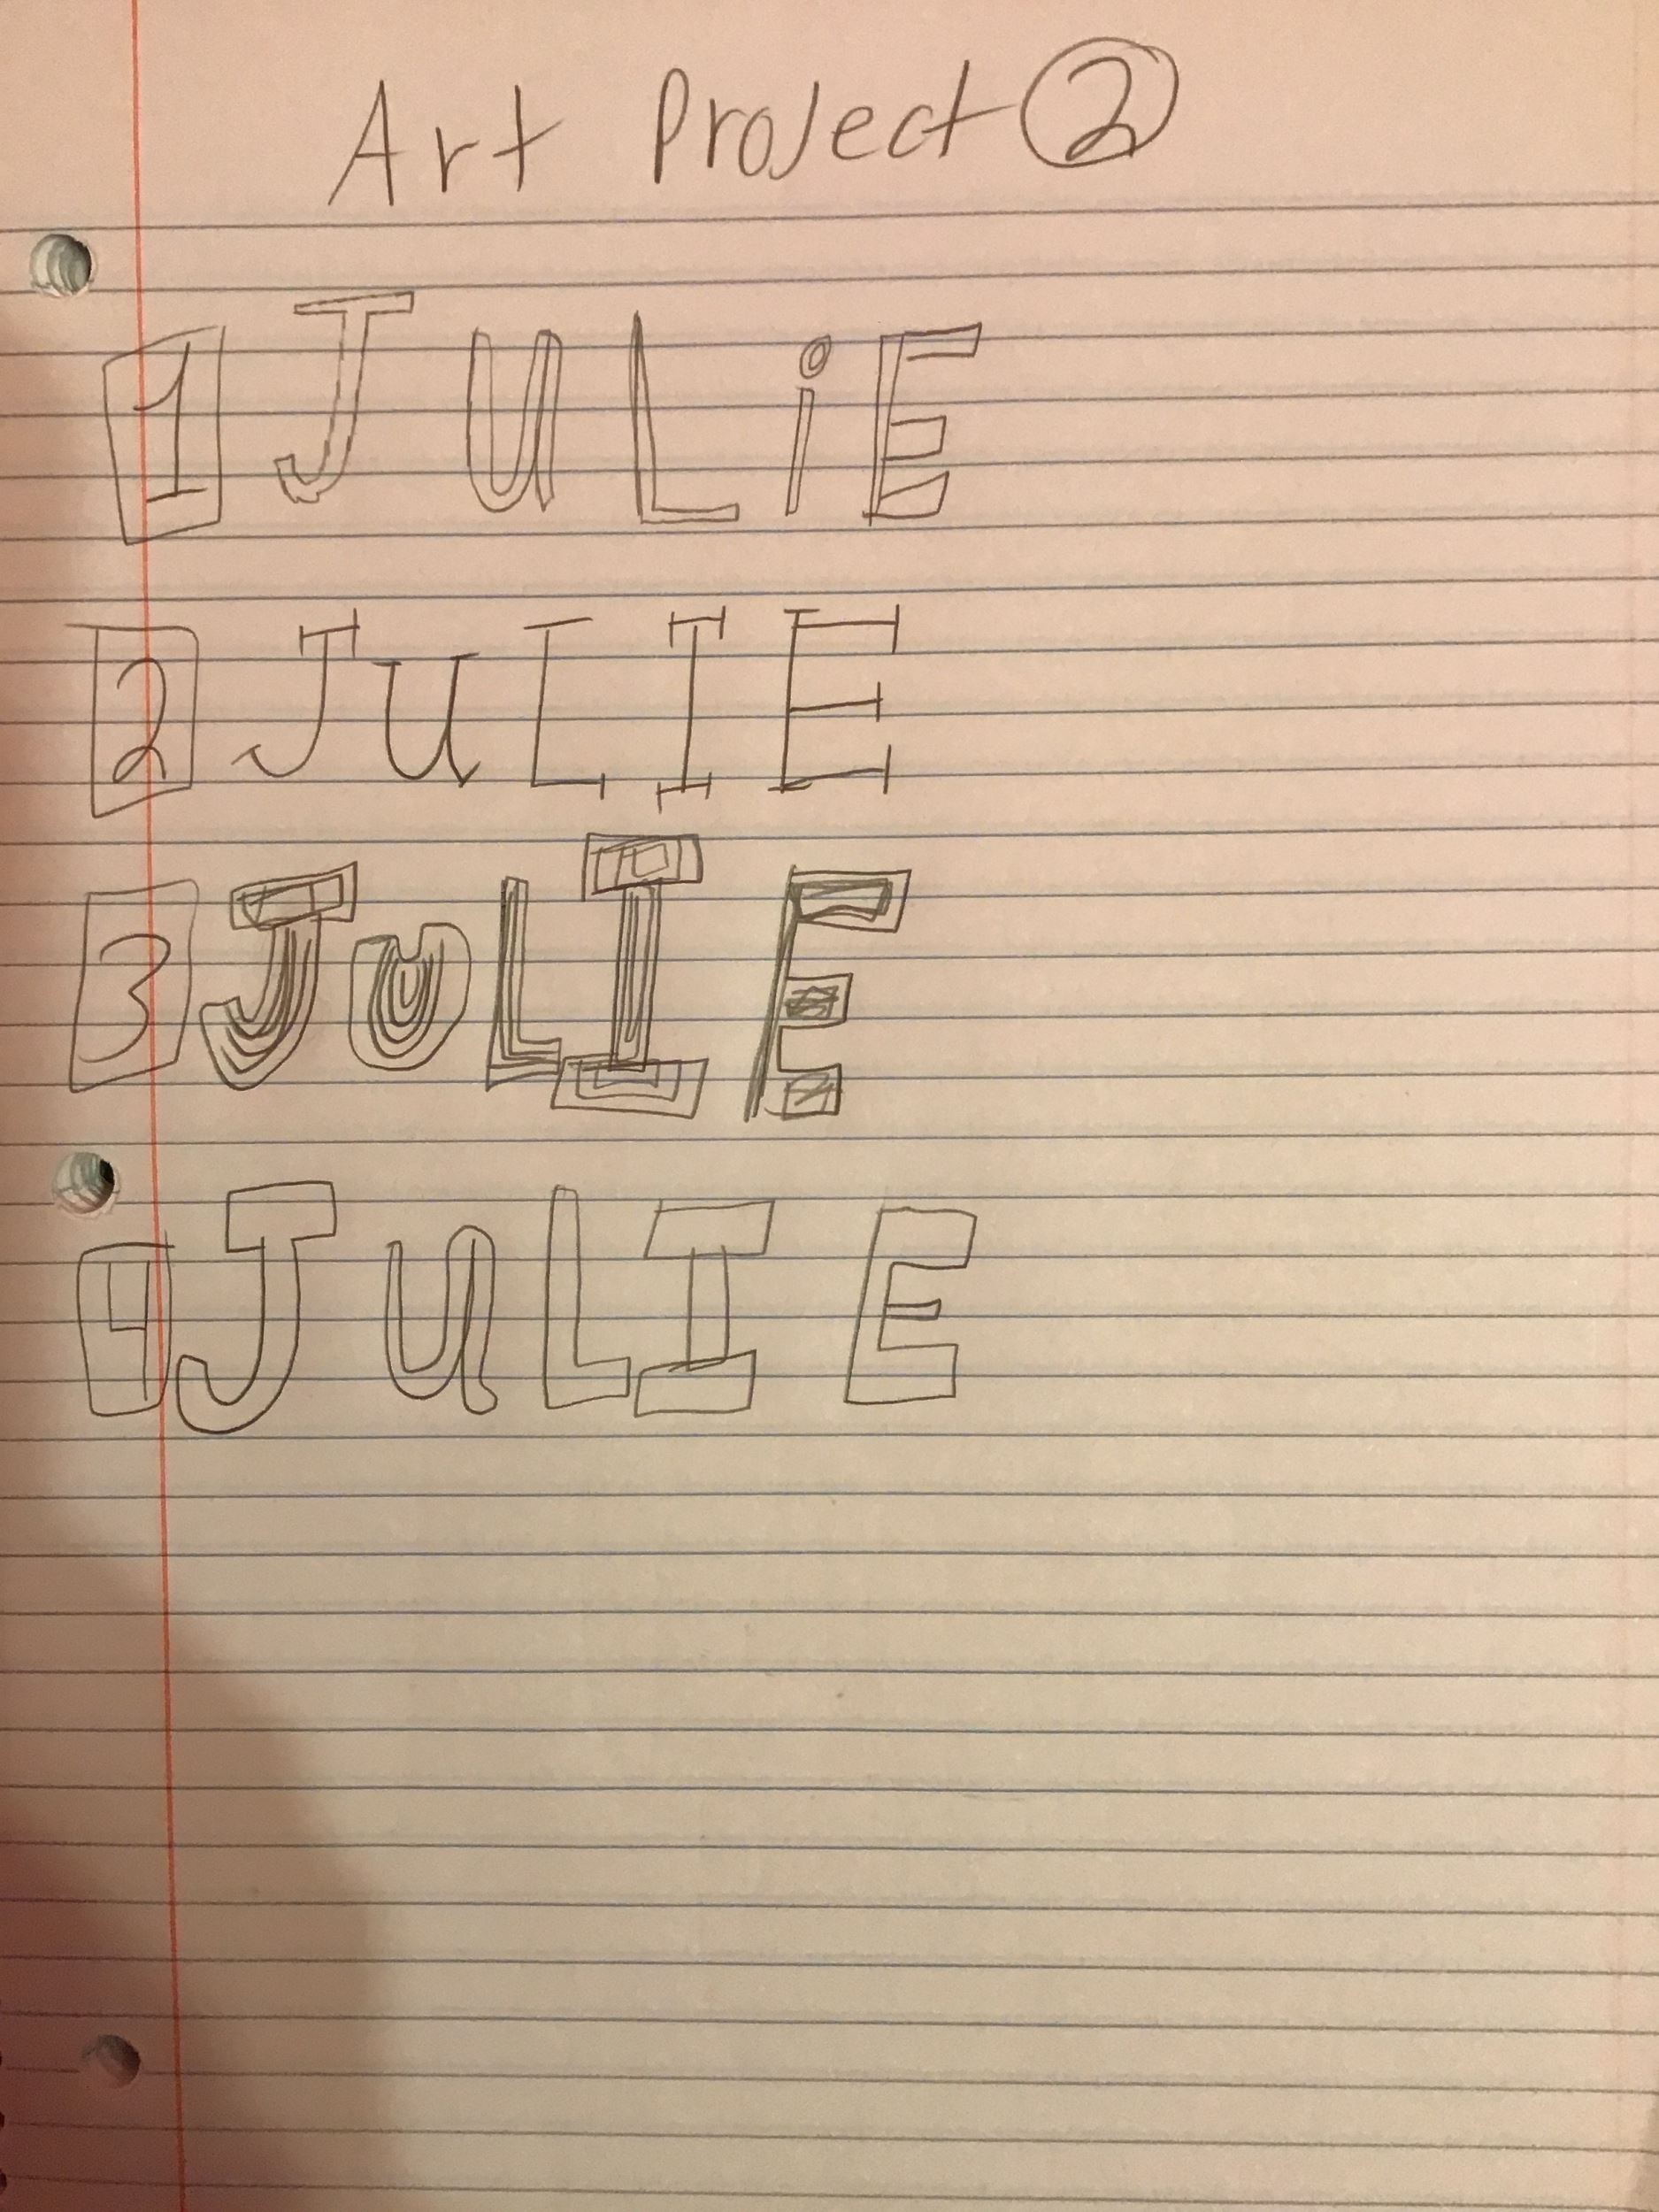 Art Project 2
1 JULiE
2 JuLIE
3 JuLIE
4 JuLIE